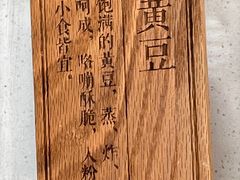 黄豆
饱满的黄豆，蒸、炸、
成，咯嘣酥脆，入粉
小食皆宜